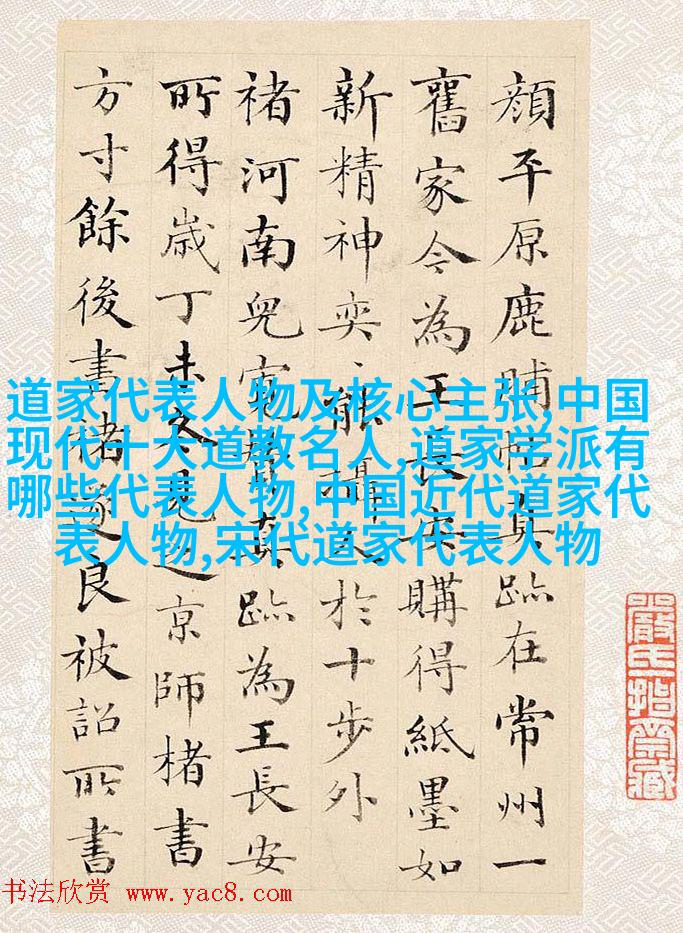 顔平原鹿脯帖真跡在常州一
舊家今為王長安購得紙墨如
新精神奕〻能攝人於十步外
褚河南兒寬贊真跡為王長安
所得歲丁未冬見之京師楮書
方寸餘後書楮遂良被詔所書
道家代表人物及核心主张,中国
现代十大道教名人,道家学派有
哪些代表人物,中国近代道家代
表人物,宋代道家代表人物
书法欣赏 www.yac8.com